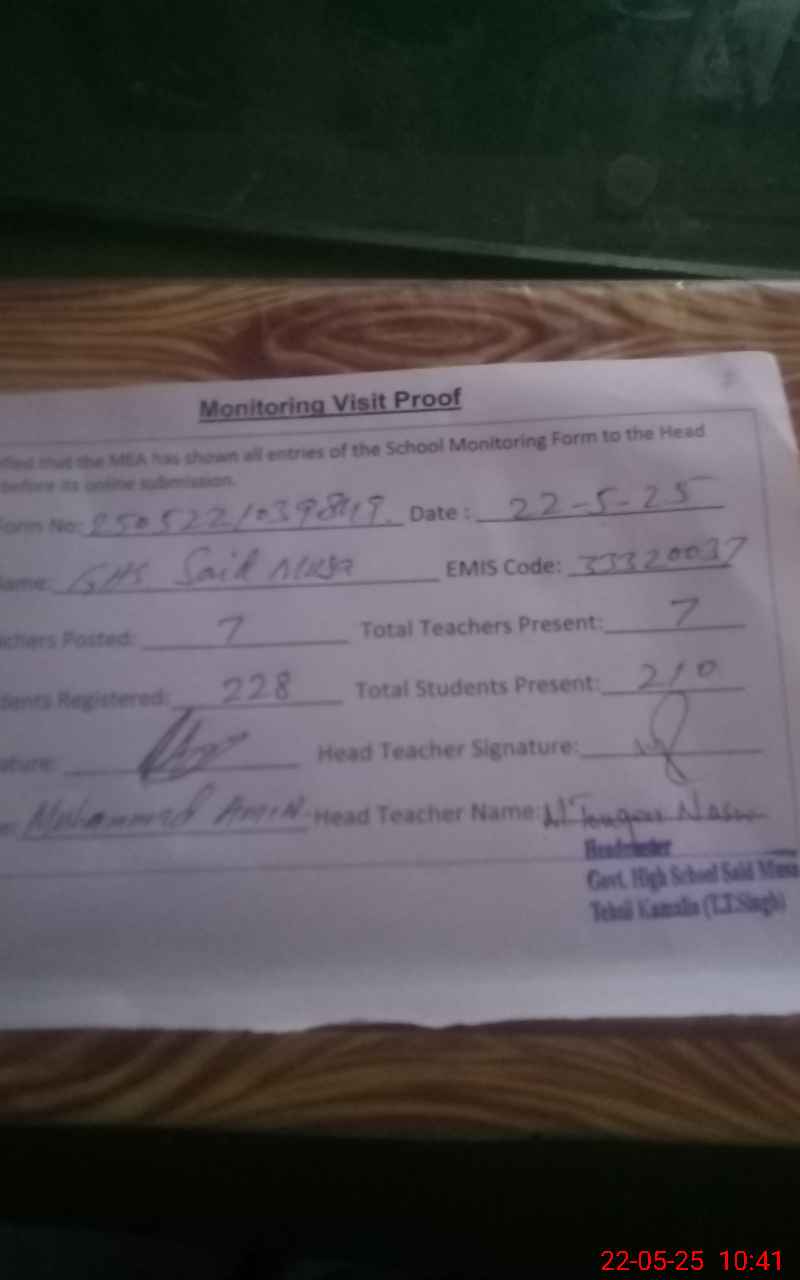 Monitoring Visit Proof
that the MEA has shown all entries of the School Monitoring Form to the Head
before its online submission.
Form No: Date : 22-5-25
ame: GHS Said Musa EMIS Code: 33320037
chers Posted: 7 Total Teachers Present: 7
dents Registered: 228 Total Students Present: 210
ature: Head Teacher Signature:
Muhammad Amin Head Teacher Name:
Headmaster
Govt. High School Said Musa
Tehsil Kamalia (T.T.Singh)
22-05-25 10:41